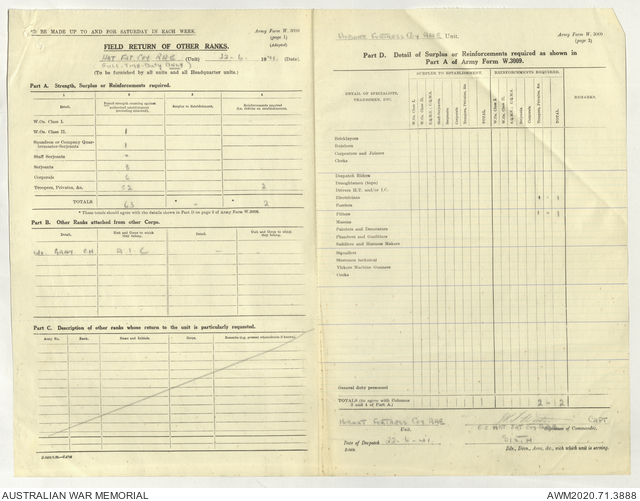 TO BE MADE UP TO AND FOR SATURDAY IN EACH WEEK.
Army Form W. 3009
(page 1)
(Adapted)
FIELD RETURN OF OTHER RANKS.
(Unit) 22-6-1941. (Date)
FULL-TIME-DUTY ONLY
(To be furnished by all units and all Headquarter units.)
Part A. Strength, Surplus or Reinforcements required.
1 2 3 4
Detail.
Surplus to Establishment.
W.Os. Class I.
W.Os. Class II. 1
Squadron or Company Quar-
termaster-Serjeants 1
Staff Serjeants
Serjeants 3
Corporals 6
Troopers, Privates, &c. 52 2
TOTALS 63 * - * 2
* These totals should agree with the details shown in Part D on page 2 of Army Form W.3009.
Part B. Other Ranks attached from other Corps.
Detail. Unit and Corps to which they belong. Detail. Unit and Corps to which they belong.
Part C. Description of other ranks whose return to the unit is particularly requested.
Army No. Rank. Name and Initials. Corps. Remarks (e.g. present whereabouts if known).
HOBART FORTRESS COY RAE Unit.
Army Form W. 3009
(page 2)
Part D. Detail of Surplus or Reinforcements required as shown in
Part A of Army Form W.3009.
DETAIL OF SPECIALISTS,
TRADESMEN, ETC.
SURPLUS TO ESTABLISHMENT. REINFORCEMENTS REQUIRED.
W.Os. Class I.
W.Os. Class II.
Staff-Serjeants
Serjeants
Corporals
Troopers, Privates, &c.
TOTAL
REMARKS.
Bricklayers
Carpenters and Joiners
Clerks
Despatch Riders
Draughtsmen (topo)
Drivers H.T. and/or I.C.
Electricians 1 - 1
Farriers
Fitters 1 - 1
Masons
Painters and Decorators
Plumbers and Gasfitters
Saddlers and Harness Makers
Signallers
Storemen technical
Vickers Machine Gunners
Cooks
General duty personnel
TOTALS (to agree with Columns
3 and 4 of Part A.) 2 - 2
HOBART FORTRESS COY RAE
Unit.
CAPT
Signature of Commander.
Date of Despatch 22-6-41
Bde., Divn., Area, &c., with which unit is serving.
AUSTRALIAN WAR MEMORIAL
AWM2020.71.3888